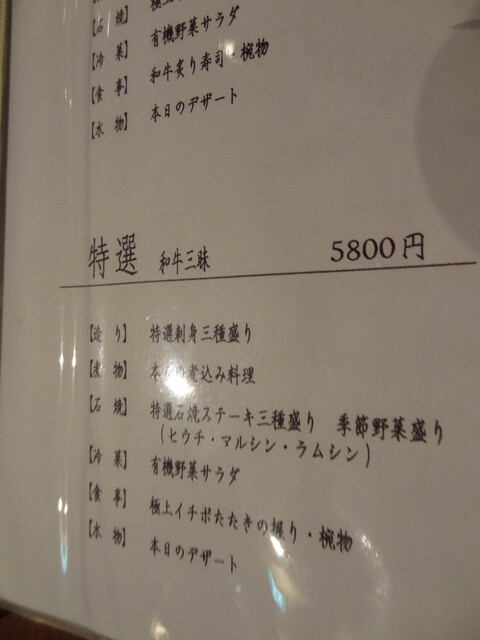 【石 焼】 極上
【冷 菜】 有機野菜サラダ
【食 事】 和牛炙り寿司・椀物
【水 物】 本日のデザート
特選 和牛三昧 5800円
【造 り】 特選刺身三種盛り
【煮 物】 本 煮込み料理
【石 焼】 特選石焼ステーキ三種盛り 季節野菜盛り
(ヒウチ・マルシン・ラムシン)
【冷 菜】 有機野菜サラダ
【食 事】 極上イチボたたきの握り・椀物
【水 物】 本日のデザート